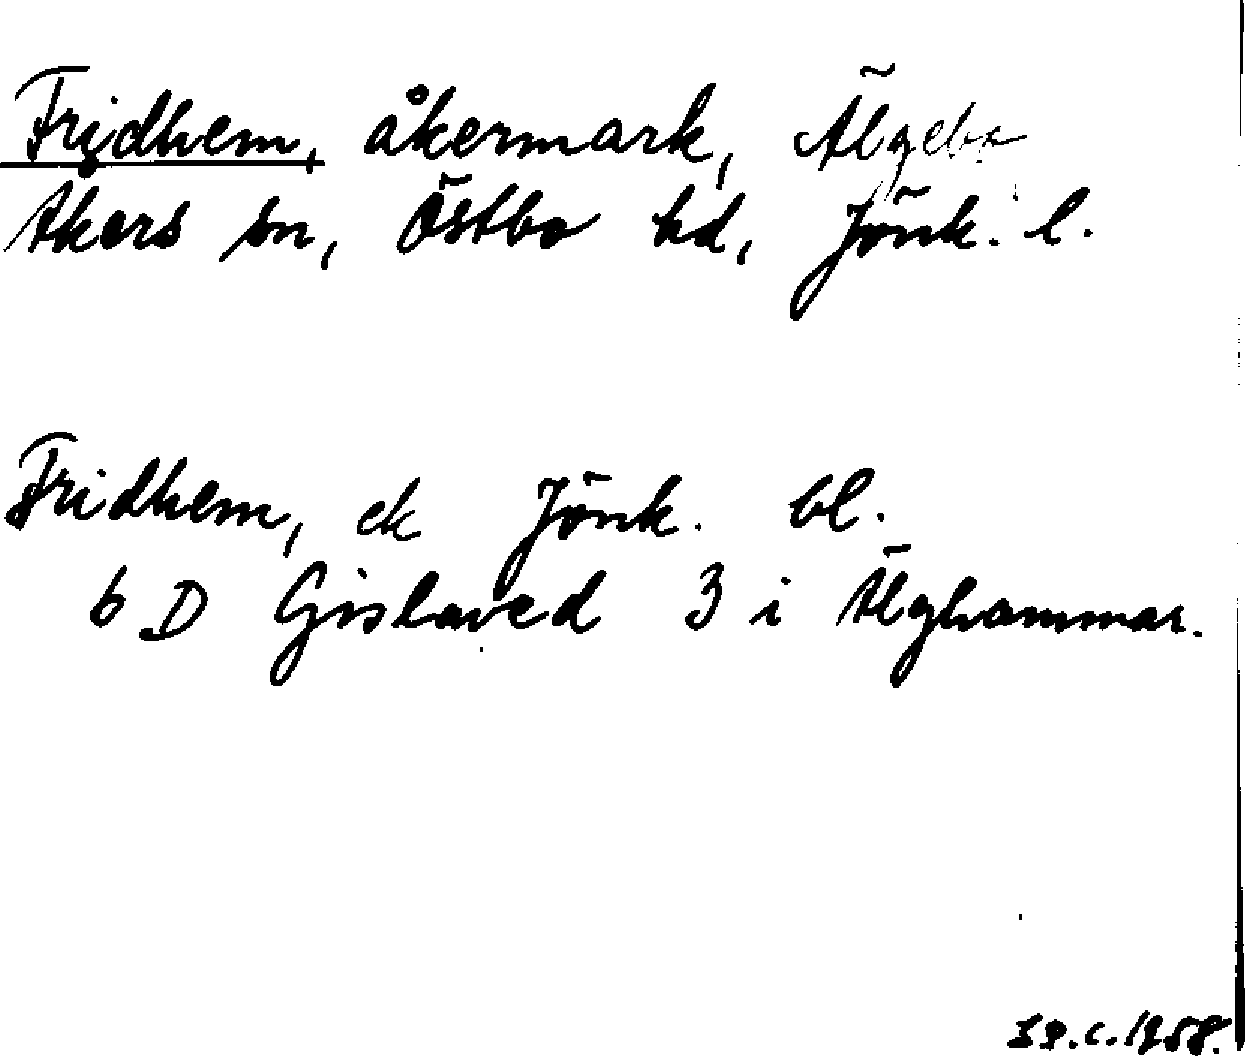 Fridhem, åkermark, Älgebo
Åkers sn, Östbo hd, Jönk. l.
Fridhem, ek Jönk. bl.
6 D Gislaved 3 i Älghammar.
1958.